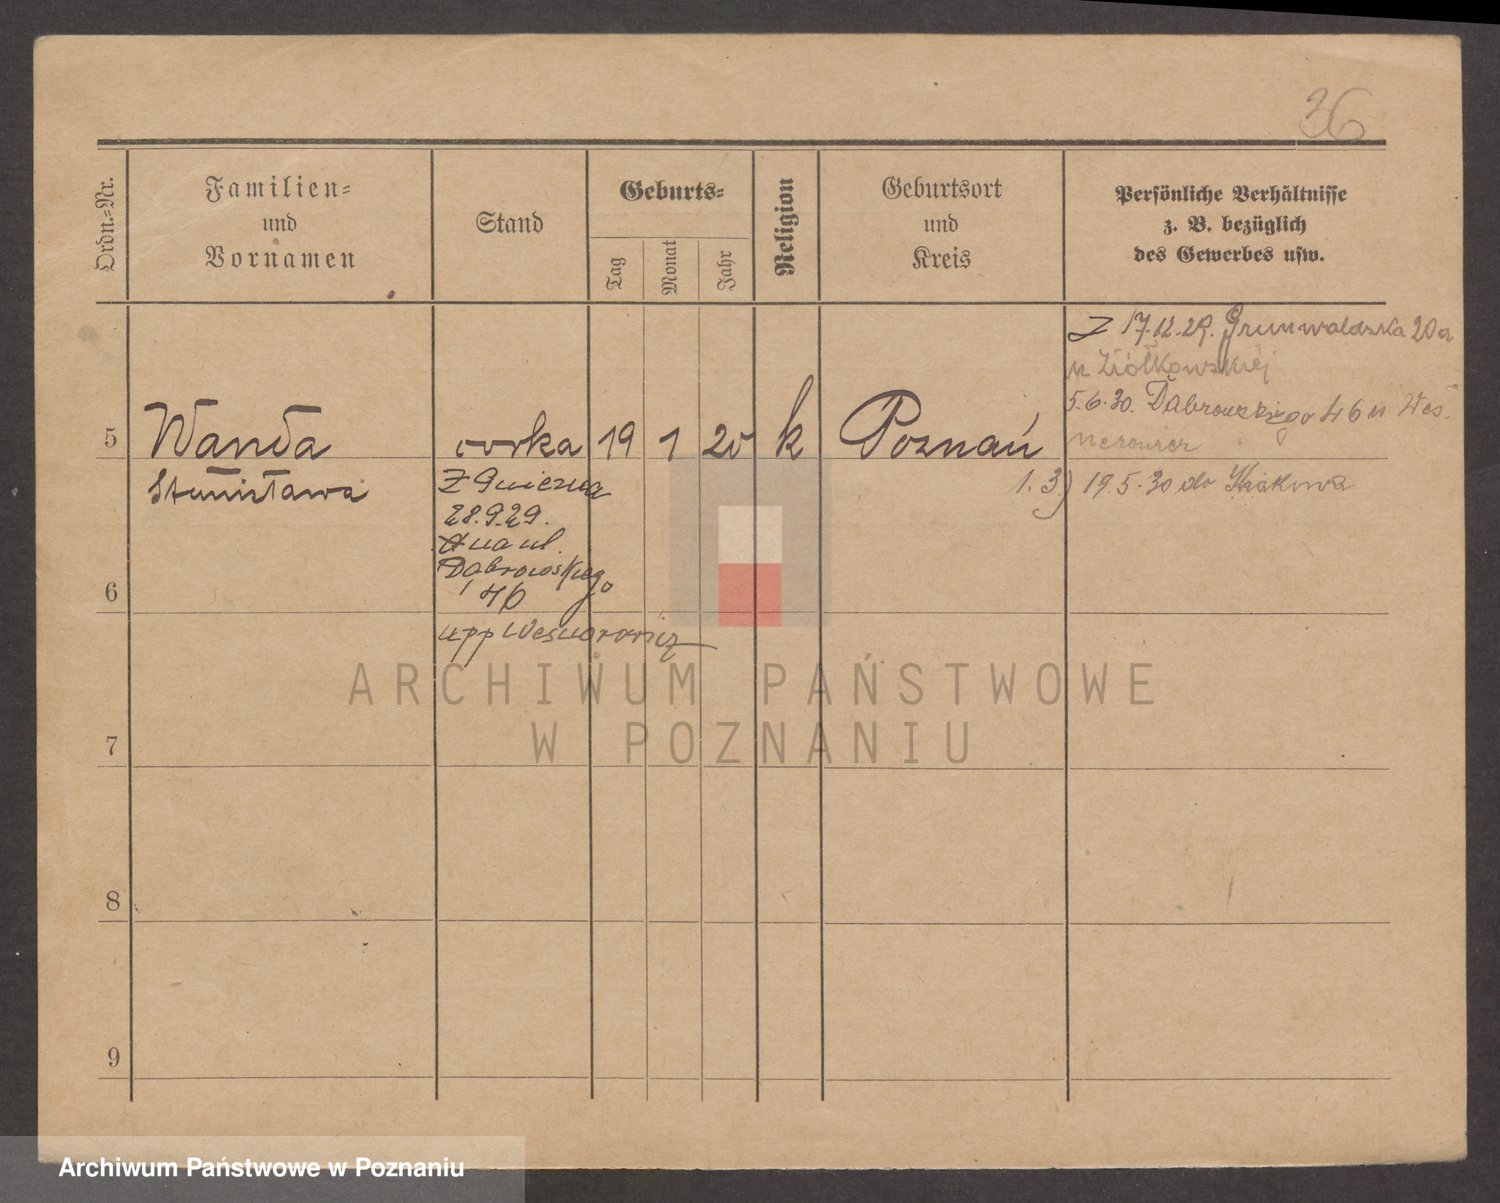 36
Ordn.-Nr.
Familien-
und
Vornamen
Stand
Geburts-
Tag
Monat
Jahr
Religion
Geburtsort
und
Kreis
Persönliche Verhältnisse
z. B. bezüglich
des Gewerbes usw.
Z 17.12.29. Grunwaldzka 20a
u Ziółkowskiej
5.6.30. Dąbrowskiego 46 u Weś.
nerowicz
5 Wanda córka 19 1 20 k Poznań
Stanisława
1.3.) 19.5.30 do Krakowa
Z Gniezna
28.9.29.
na ul.
Dąbrowskiego
46
u pp Weśnerowicz
6
7
8
9
ARCHIWUM PAŃSTWOWE
W POZNANIU
Archiwum Państwowe w Poznaniu